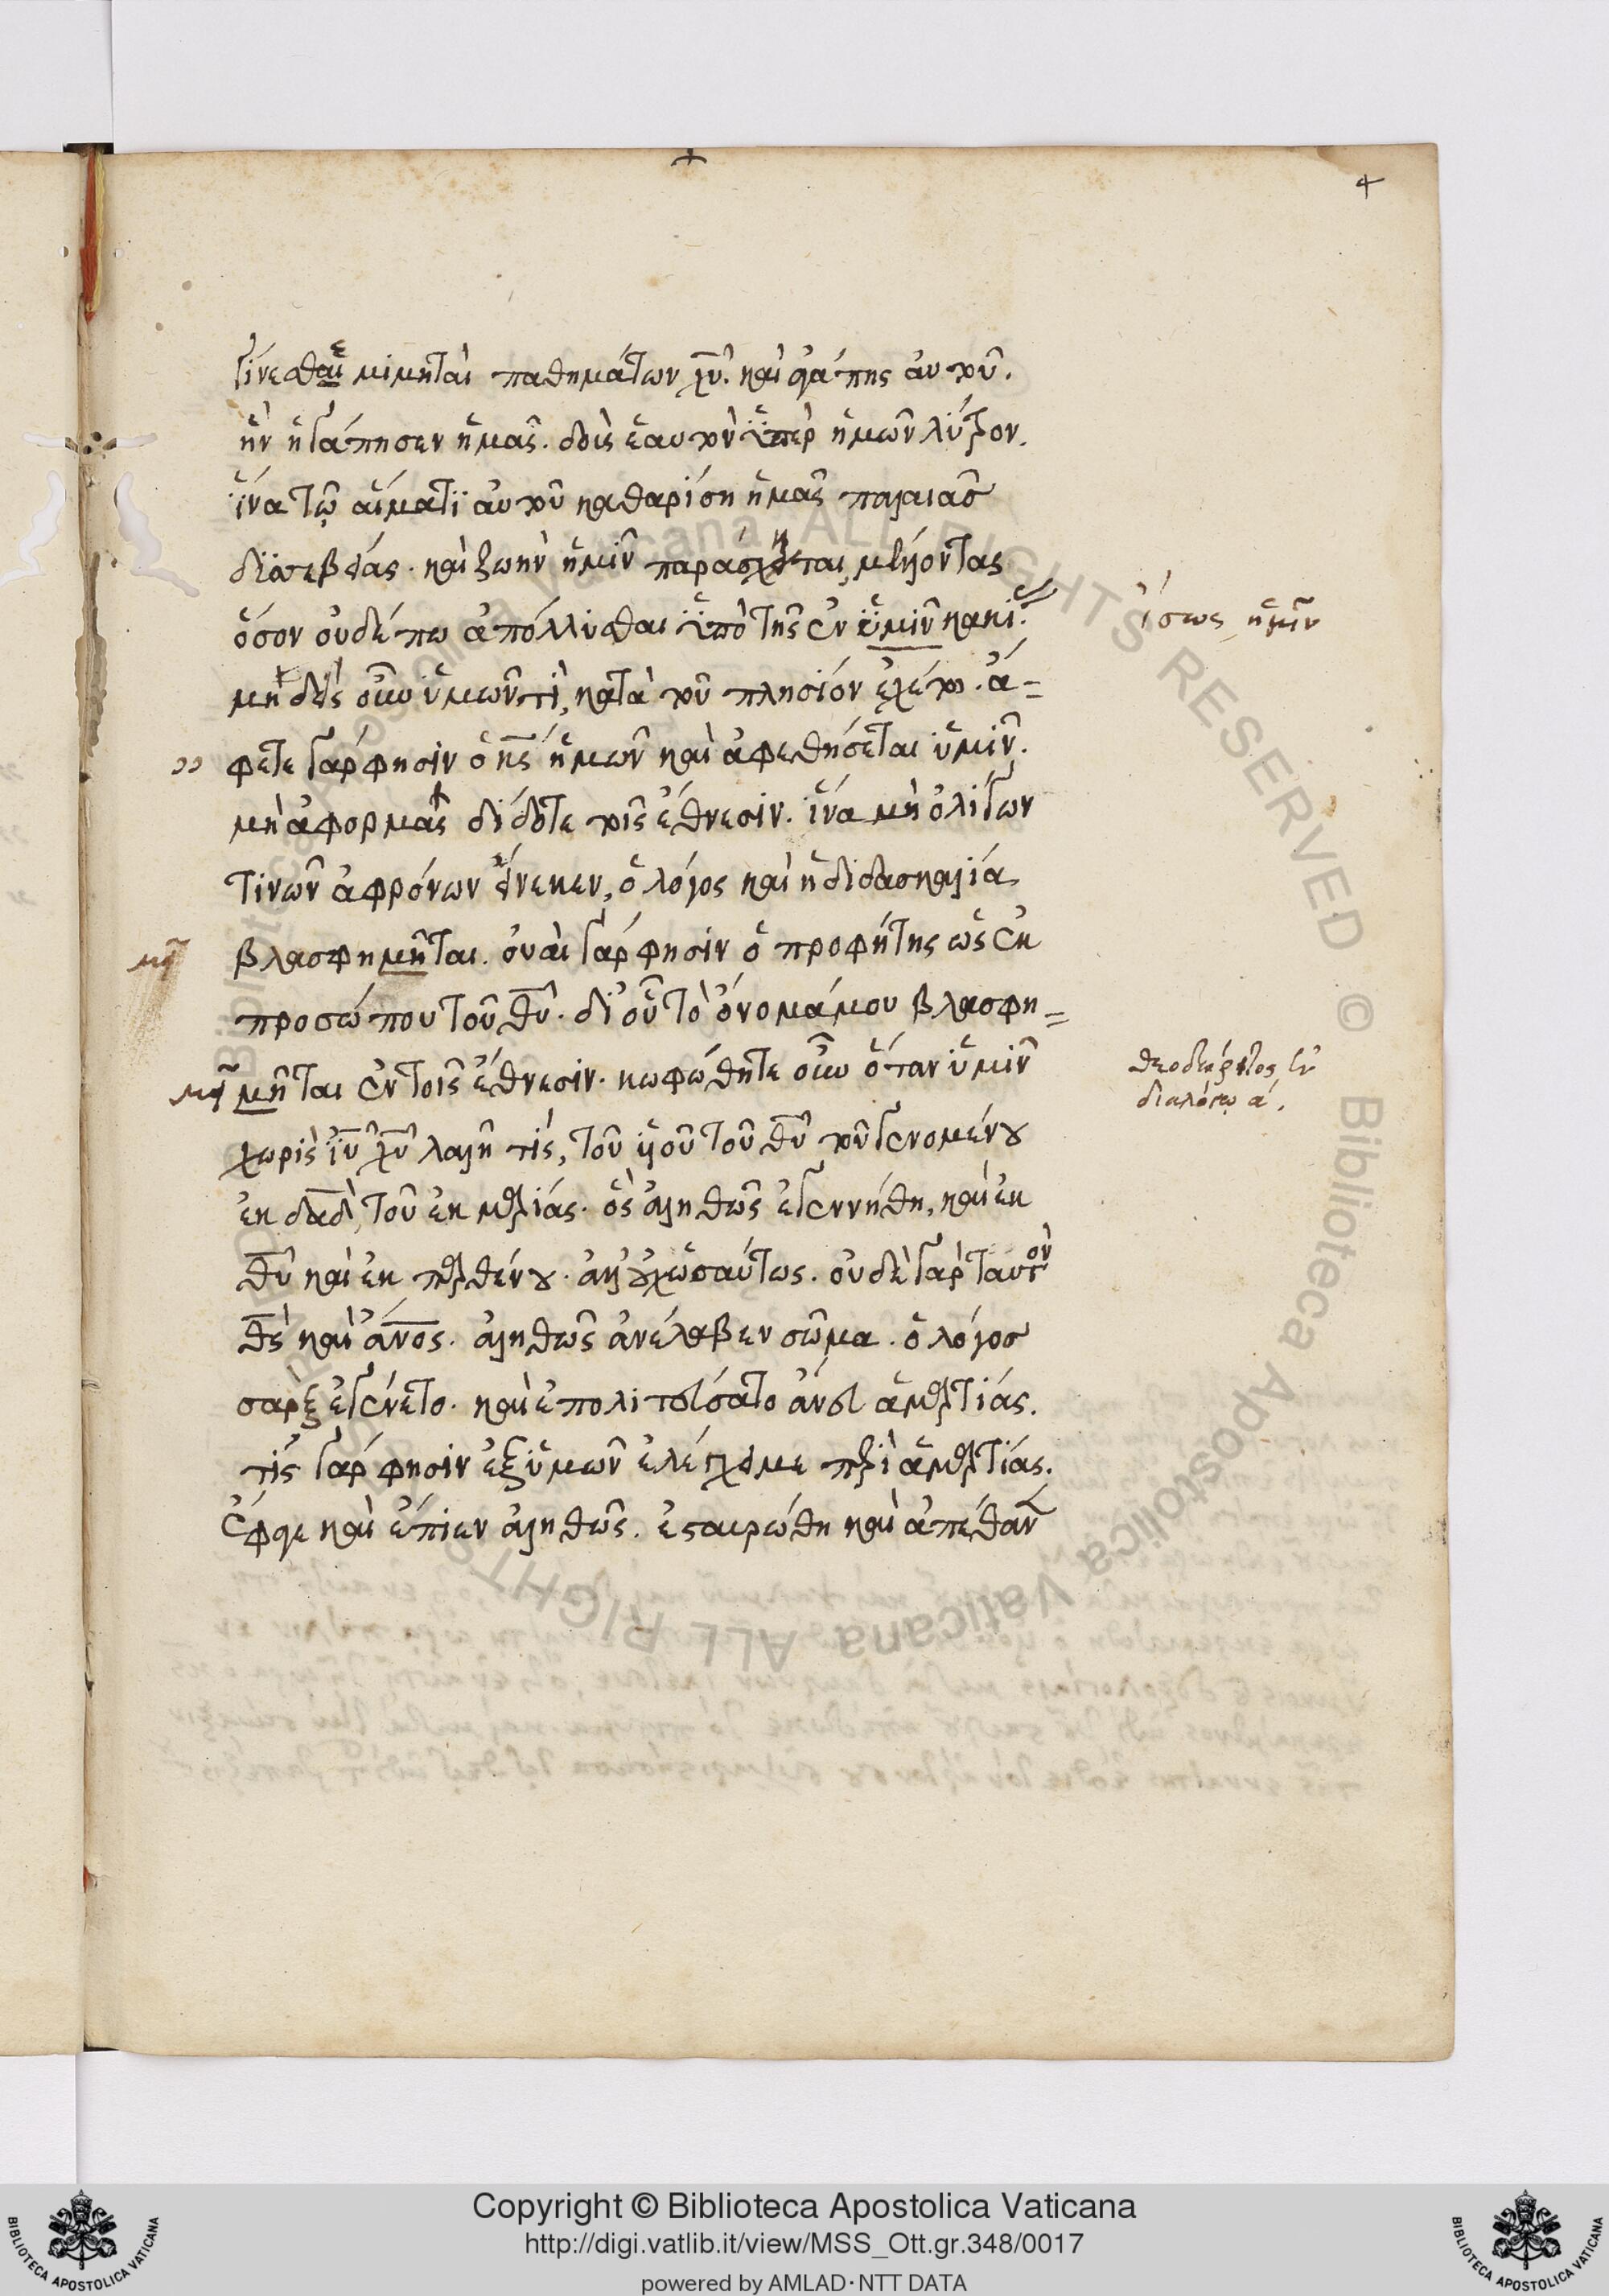 4
γίνεσθαι μιμηταὶ παθημάτων χυ̅. καὶ ἀγάπης αὐτοῦ.
ἣν ἠγάπησεν ἡμᾶς. δοὺς ἑαυτὸν ὑπὲρ ἡμῶν λύτρον.
ἵνα τῷ αἵματι αὐτοῦ καθαρίση ἡμᾶς παλαιᾶσ
δυσσεβείας. καὶ ζωὴν ἡμῖν παράσχηται, μέλλοντας
ὅσον οὐδέπω ἀπόλλυσθαι ὑπὸ τῆς ἐν ὑμῖν κακί.
ἴσως, ἡμῖν
μηδεὶς οὖν ὑμῶν τὶ, κατὰ τοῦ πλησίον ἐχέτω. ἄ=
φετε γάρ φησιν ὁ κς̅ ἡμῶν καὶ ἀφεθήσεται ὑμῖν.
μὴ ἀφορμὰς δίδοτε τοῖς ἔθνεσιν. ἵνα μὴ ὀλίγων
τινῶν ἀφρόνων ἕνεκεν, ὁ λόγος καὶ ἡ διδασκαλία
βλασφημῆται. οὐαὶ γάρ φησὶν ὁ προφήτης ὡς ἐκ
προσώπου τοῦ θυ̅. δι' οὗ τὸ ὄνομά μου βλασφη=
μῆται ἐν τοῖς ἔθνεσιν. κωφώθητε οὖν ὅταν ὑμῖν
θεοδώρητος ἐν
διαλόγω α´.
χωρὶς ιυ̅ χυ̅ λαλῆ τίς, τοῦ υἱοῦ τοῦ θυ̅ τοῦ γενομένου
ἐκ δαδ̅, τοῦ ἐκ μαρίας. ὃς ἀληθῶς ἐγεννήθη, καὶ ἐκ
θυ̅ καὶ ἐκ παρθένου. ἀλλ' οὐχ ὡσαύτως. οὐδὲ γὰρ ταυτὸν
θς̅ καὶ ἄνος̅. ἀληθῶς ἀνέλαβεν σῶμα. ὁ λόγοσ
σὰρξ ἐγένετο. καὶ ἐπολιτεύσατο ἄνευ ἁμαρτίας.
τίς γάρ φησιν ἐξ ὑμῶν ἐλέγχει με περὶ ἁμαρτίας.
ἔφαγε καὶ ἔπιεν ἀληθῶς. ἐσταυρώθη καὶ ἀπέθαν
Copyright © Biblioteca Apostolica Vaticana
http://digi.vatlib.it/view/MSS_Ott.gr.348/0017
powered by AMLAD·NTT DATA